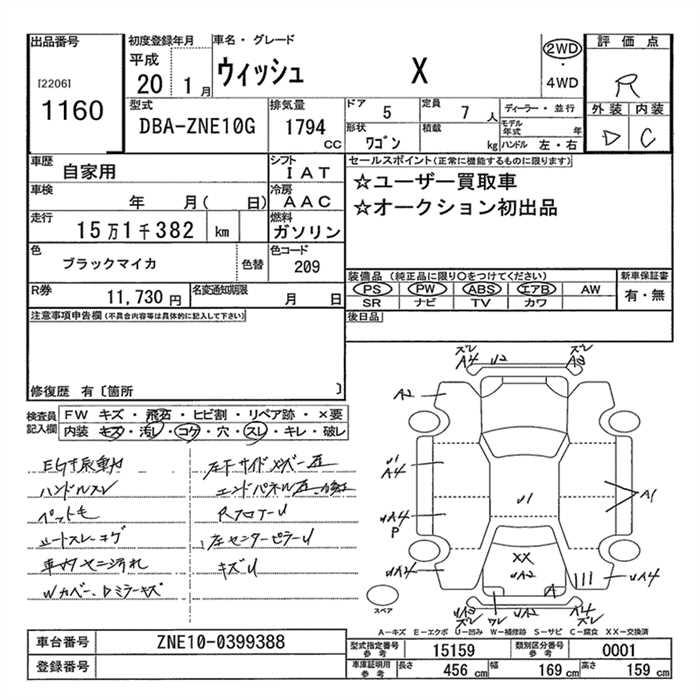 出品番号
[2206]
1160
初度登録年月
平成
20 1月
車名・グレード
ウィッシュ X
2WD
・
4WD
評価点
R
外装 内装
D C
型式
DBA-ZNE10G
排気量
1794 cc
ドア 5
定員 7人
形状 ワゴン
積載 kg
ディーラー・並行
モデル年式 年
ハンドル 左・右
車歴 自家用
シフト IAT
車検 年 月( 日)
冷房 AAC
走行 15万1千382 km
燃料 ガソリン
色 ブラックマイカ 色替
色コード 209
R券 11,730円
名変通知期限 月 日
セールスポイント(正常に機能するものに限ります)
☆ユーザー買取車
☆オークション初出品
装備品(純正品に限り○をつけてください)
PS PW ABS エアB AW
SR ナビ TV カワ
新車保証書
有・無
後日品
注意事項申告欄(不具合内容等は具体的に記入して下さい)
修復歴 有〔箇所 〕
検査員記入欄
FW キズ・飛石・ヒビ割・リペア跡・×要
内装 キズ・汚レ・コゲ・穴・スレ・キレ・破レ
ハンドルスレ
ペット毛
シートスレ・コゲ
Wカバー、Dミラーキズ
左リサイドメンバー歪
エンドパネル歪
RフロアーU
左センターピラーU
キズU
ズレ
A4
U2
A3
ズレ
A2
U1
A4
UA4
P
UA4
U1
A1
XX
UA2
UA4
UA3
ズレ
ワレ
UA2
A4
ズレ
スペア
A-キズ E-エクボ U-凹み W-補修跡 S-サビ C-腐食 XX-交換済
車台番号 ZNE10-0399388
登録番号
型式指定番号 参考 15159
類別区分番号 参考 0001
車庫証明用 参考 長さ 456cm 幅 169cm 高さ 159cm